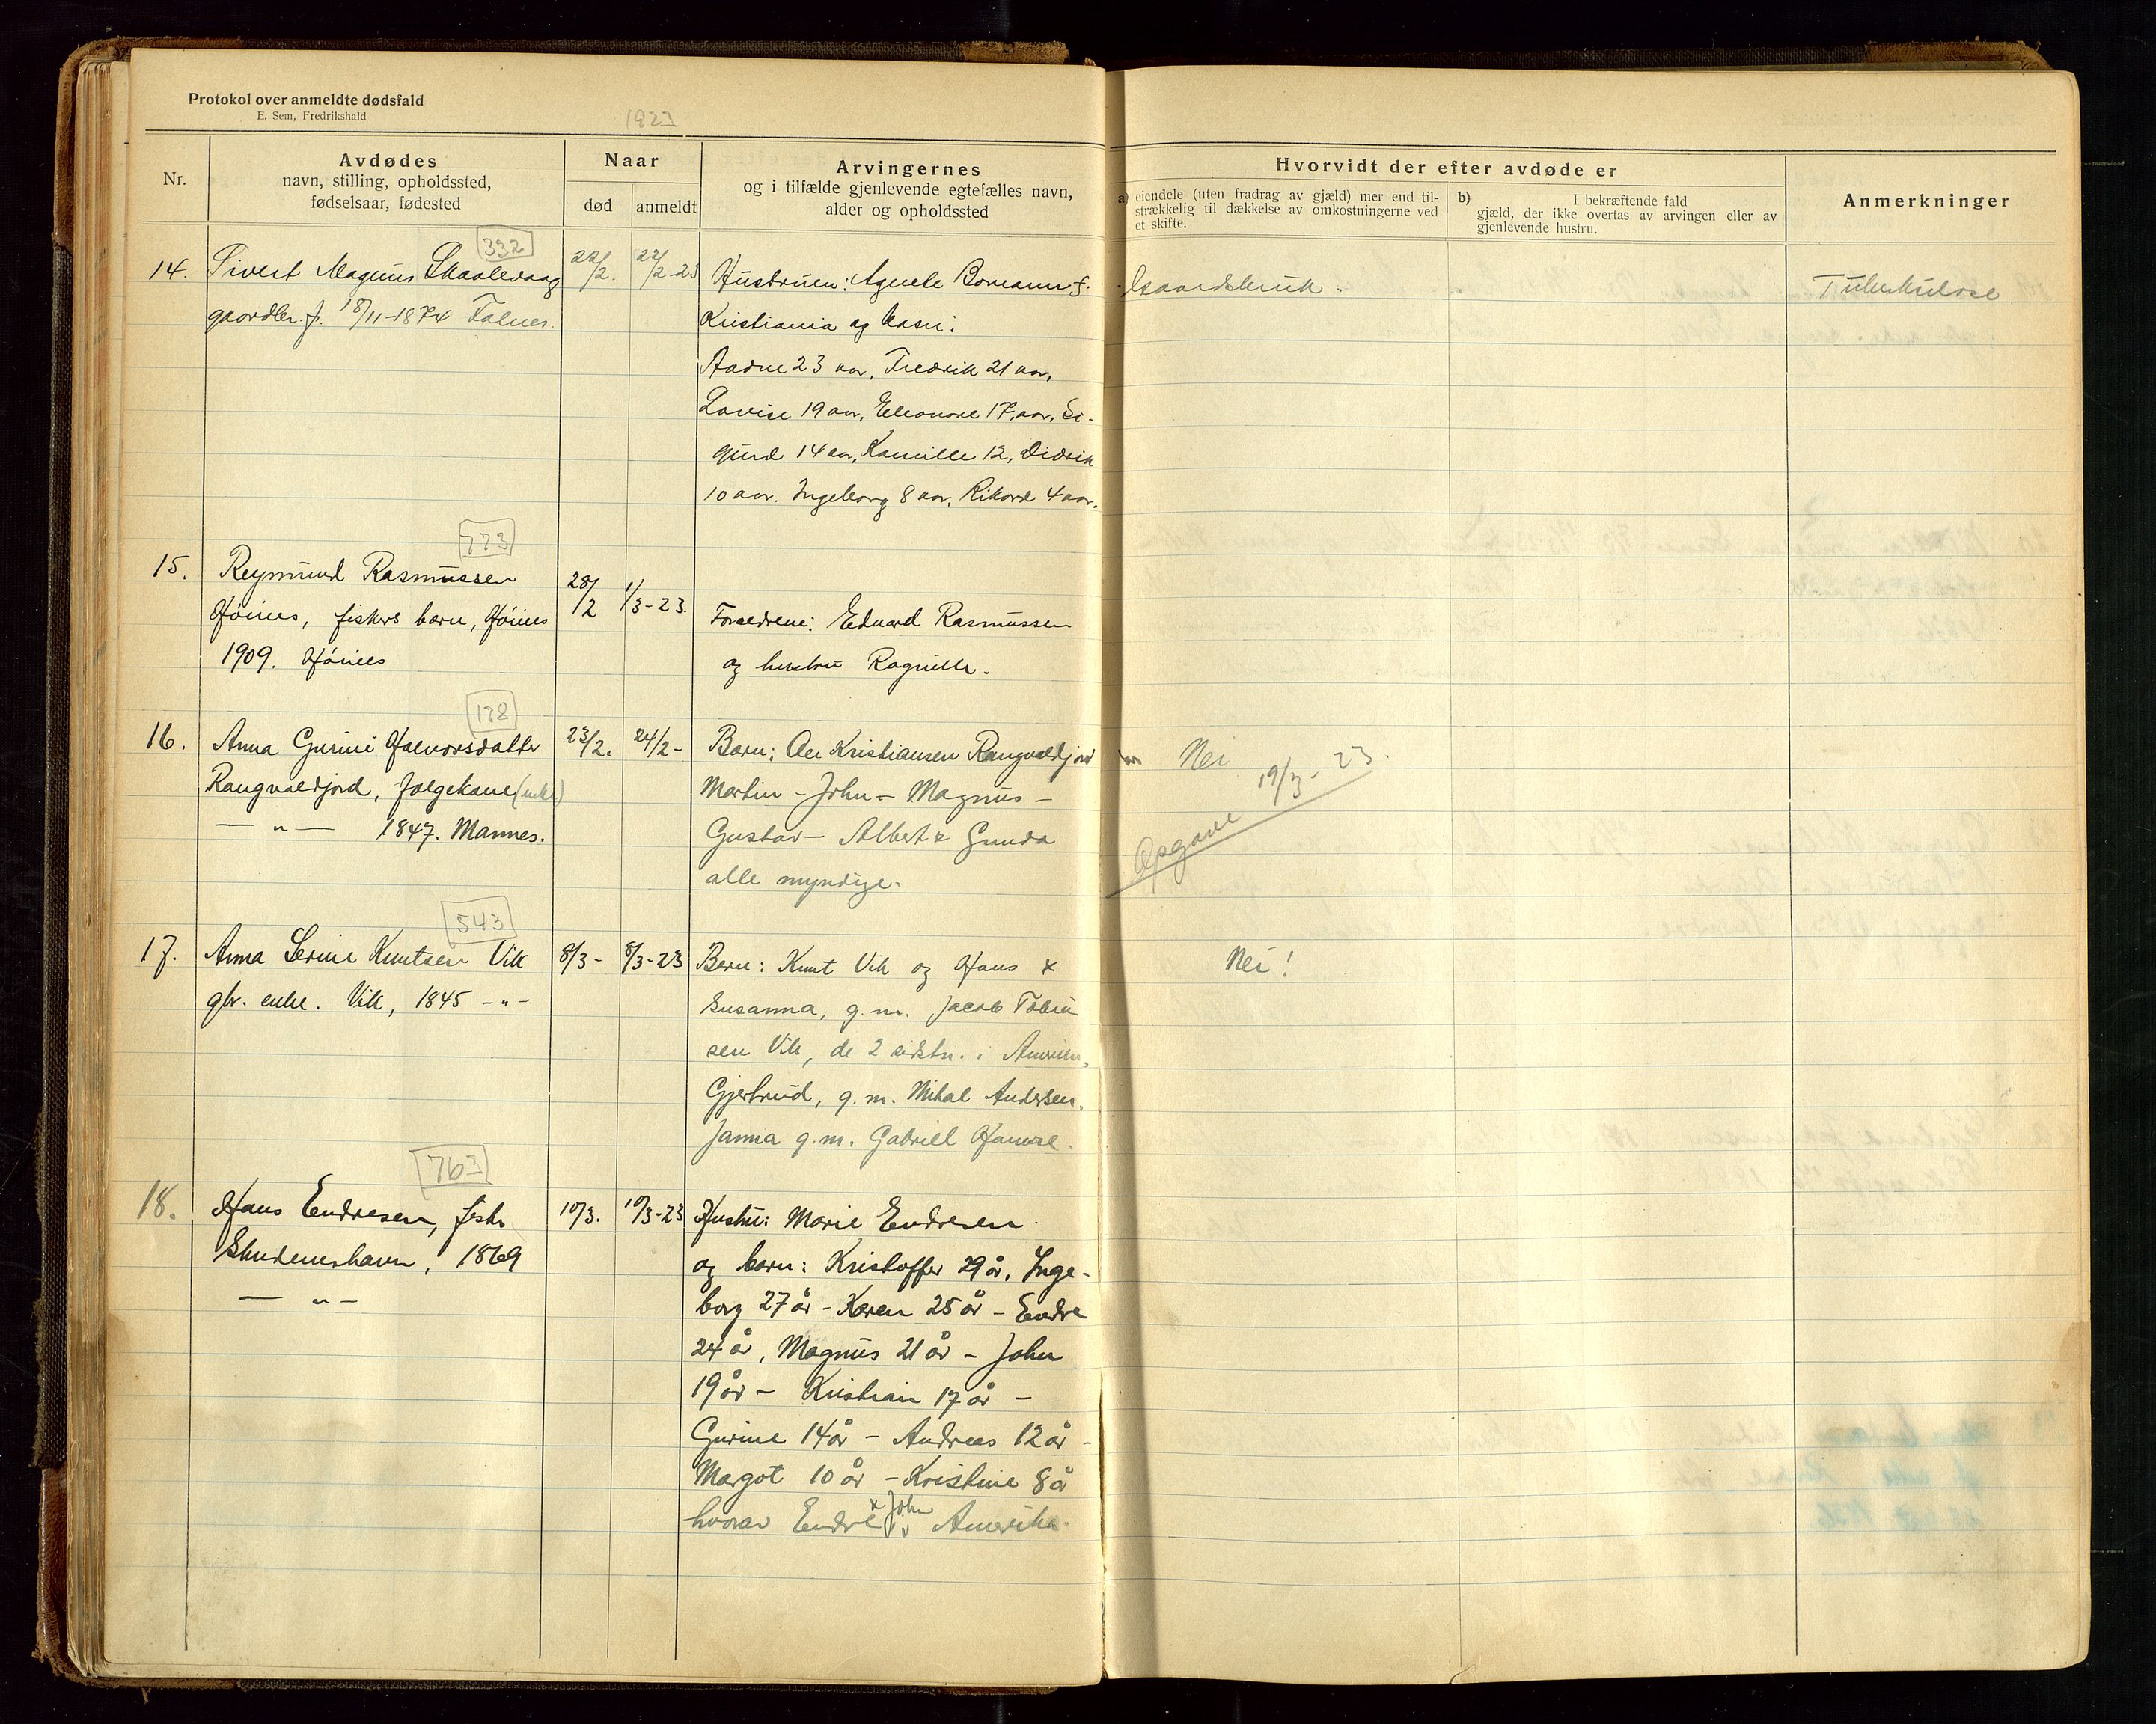 Protokol over anmeldte dødsfald
E. Sem, Fredrikshald
1923
Nr.
Avdødes
navn, stilling, opholdssted,
fødselsaar, fødested
Naar
død
anmeldt
Arvingernes
og i tilfælde gjenlevende egtefælles navn,
alder og opholdssted
Hvorvidt der efter avdøde er
a) eiendele (uten fradrag av gjæld) mer end til-
strækkelig til dækkelse av omkostningerne ved
et skifte.
b) I bekræftende fald
gjæld, der ikke overtas av arvingen eller av
gjenlevende hustru.
Anmerkninger
332
14. Sivert Magnus Skaalevaag
gaardbr. f. 18/11-1874 Falnes.
22/2.
22/2-23
Hustruen: Agnete Bomann f.
Kristiania og barn:
Aadne 23 aar, Fredrik 21 aar,
Lovise 19 aar, Eleonore 17 aar, Si-
gurd 14 aar, Kamille 12, Didrik
10 aar. Ingeborg 8 aar, Rikard 4 aar.
Gaardsbruk.
Tuberkulose
773
15. Reymund Rasmussen
Høines, fiskers barn, Høines
1909. Høines
28/2
1/3-23.
Forældrene: Edvard Rasmussen
og hustru Ragnille.
178
16. Anna Gurine Halvorsdatter
Rangvaldjord, folgekone (enke)
— " — 1847. Mannes.
23/2.
24/2-
Barn: Ole Kristiansen Rangvaldjord
Martin – John – Magnus –
Gustav – Albert & Gunda
alle myndige.
Nei
Opgave 19/3-23.
543
17. Anna Serine Knutsen Vik
gbr. enke. Vik, 1845 – " –
8/3-
8/3-23
Barn: Knut Vik og Hans &
Susanna, g. m. Jacob Tobia
sen Vik, de 2 sidstn. i Amerika.
Gjertrud, g. m. Mikal Andersen.
Janna g. m. Gabriel
Nei!
763
18. Hans Endresen, fisker
Skudeneshavn, 1869
— " —
10/3.
10/3-23
Hustru: Marie Endresen.
og barn: Kristoffer 29 år, Inge-
borg 27 år – Karen 25 år – Endre
24 år, Magnus 21 år – John
19 år – Kristian 17 år –
Gurine 14 år – Andreas 12 år –
Margot 10 år – Kristine 8 å
hvorav Endre & John i Amerika.